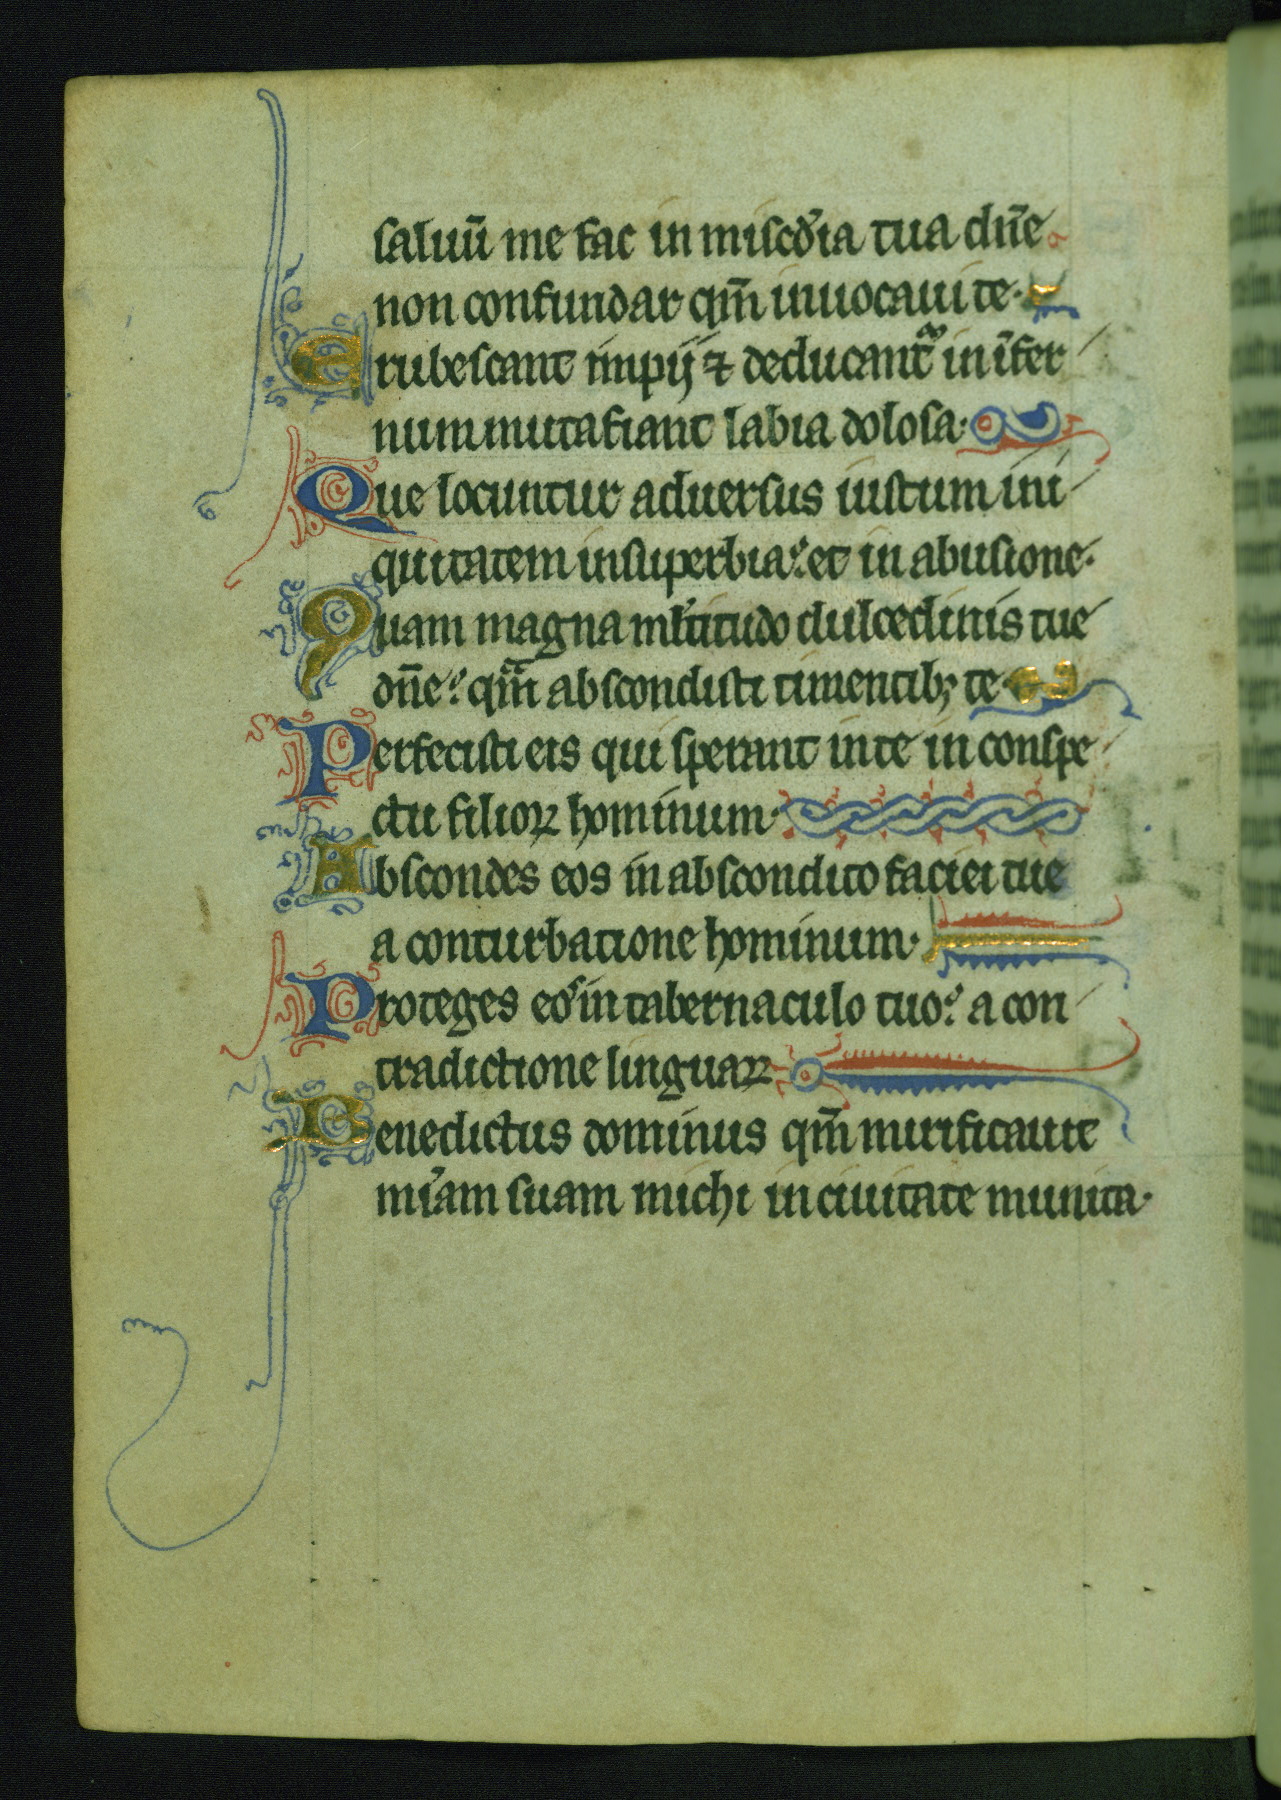 saluū me fac in misc̄dia tua dn̄e
non confundar qm̄ inuocaui te·
Erubescant impij ⁊ deducant᷑ in īfer
num muta fiant labia dolosa·
Que locuntur aduersus iustum ini
quitatem in superbia: et in abusione·
Quam magna ml̓titudo dulcedinis tue
dn̄e: qm̄ abscondisti timentibꝫ te
Perfecisti eis qui sperant in te in conspe
ctu filioꝝ hominum·
Abscondes eos in abscondito faciei tue
a conturbatione hominum·
Proteges eos in tabernaculo tuo: a con
tradictione linguaꝝ
Benedictus dominus qm̄ mirificauit
mīam suam michi in ciuitate munita·